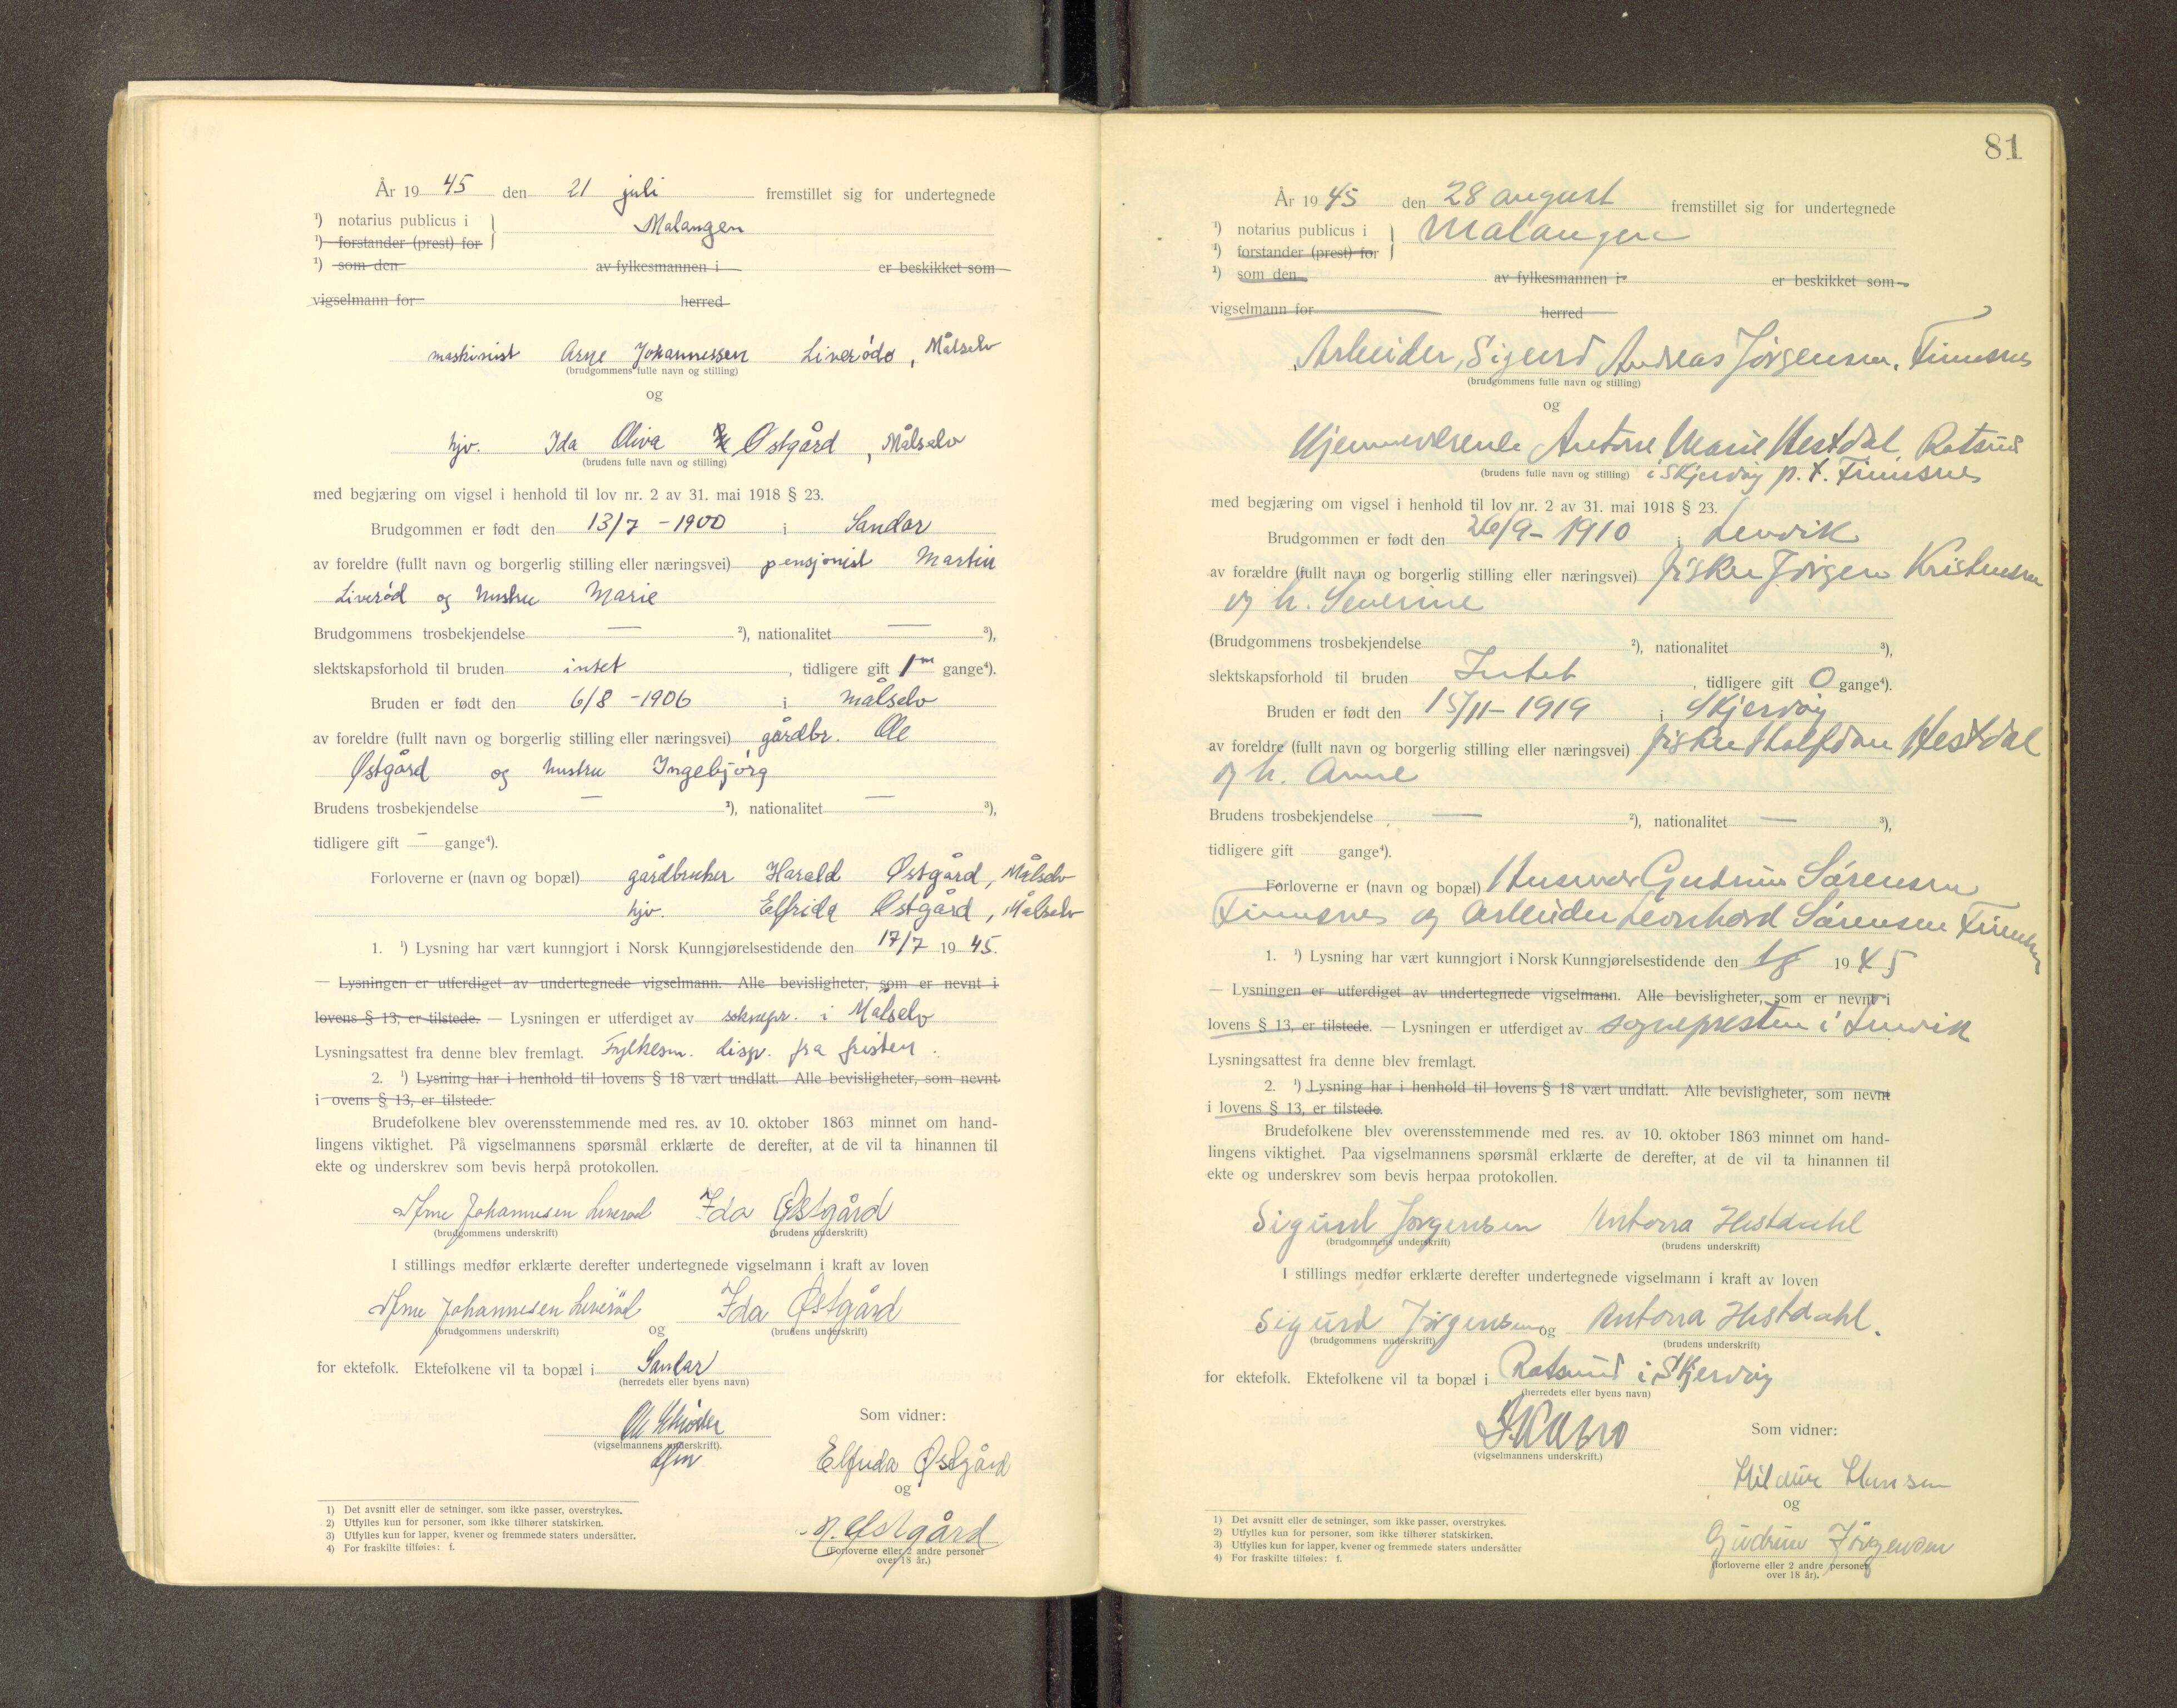 År 19 45 den 21 juli fremstillet sig for undertegnede
¹) notarius publicus i } Malangen
¹) forstander (prest) for
¹) som den av fylkesmannen i er beskikket som
vigselmann for herred
maskinist Arne Johannessen Liverød, Målselv
(brudgommens fulle navn og stilling)
og
hjv. Ida Oliva Østgård, Målselv
(brudens fulle navn og stilling)
med begjæring om vigsel i henhold til lov nr. 2 av 31. mai 1918 § 23.
Brudgommen er født den 13/7 - 1900 i Sandar
av foreldre (fullt navn og borgerlig stilling eller næringsvei) pensjonist Martin
Liverød og hustru Marie
Brudgommens trosbekjendelse — ²), nationalitet — ³),
slektskapsforhold til bruden intet, tidligere gift 1 gange⁴).
Bruden er født den 6/8 - 1906 i Målselv
av foreldre (fullt navn og borgerlig stilling eller næringsvei) gårdbr. Ole
Østgård og hustru Ingebjørg
Brudens trosbekjendelse — ²), nationalitet — ³),
tidligere gift - gange⁴).
Forloverne er (navn og bopæl) gårdbruker Harald Østgård, Målselv
hjv. Elfrida Østgård, Målselv
1. ¹) Lysning har vært kunngjort i Norsk Kunngjørelsestidende den 17/7 19 45.
— Lysningen er utferdiget av undertegnede vigselmann. Alle bevisligheter, som er nevnt i
lovens § 13, er tilstede. — Lysningen er utferdiget av soknepr. i Målselv
Lysningsattest fra denne blev fremlagt. Fylkesm. disp. fra fristen.
2. ¹) Lysning har i henhold til lovens § 18 vært undlatt. Alle bevisligheter, som nevnt
i ovens § 13, er tilstede.
Brudefolkene blev overensstemmende med res. av 10. oktober 1863 minnet om hand-
lingens viktighet. På vigselmannens spørsmål erklærte de derefter, at de vil ta hinannen til
ekte og underskrev som bevis herpå protokollen.
Arne Johannesen Liverød Ida Østgård
(brudgommens underskrift) (brudens underskrift)
I stillings medfør erklærte derefter undertegnede vigselmann i kraft av loven
Arne Johannesen Liverød og Ida Østgård
(brudgommens underskrift) (brudens underskrift)
for ektefolk. Ektefolkene vil ta bopæl i Sandar
(herredets eller byens navn)
Som vidner:
(vigselmannens underskrift).
Elfrida Østgård
og
H. Østgård
(Forloverne eller 2 andre personer
over 18 år.)
1) Det avsnitt eller de setninger, som ikke passer, overstrykes.
2) Utfylles kun for personer, som ikke tilhører statskirken.
3) Utfylles kun for lapper, kvener og fremmede staters undersåtter.
4) For fraskilte tilføies: f.
81
År 19 45 den 28 august fremstillet sig for undertegnede
¹) notarius publicus i } Malangen
¹) forstander (prest) for
¹) som den av fylkesmannen i er beskikket som
vigselmann for herred
Arbeider, Sigurd Andreas Jørgensen, Finnsnes
(brudgommens fulle navn og stilling)
og
Hjemmeværende Antorre Marie Hestdal Rotsund
(brudens fulle navn og stilling) i Skjervøy p.t. Finnsnes
med begjæring om vigsel i henhold til lov nr. 2 av 31. mai 1918 § 23.
Brudgommen er født den 26/9 - 1910 i Lenvik
av forældre (fullt navn og borgerlig stilling eller næringsvei) fisker Jørgen Kristensen
og h. Severine
(Brudgommens trosbekjendelse ²), nationalitet ³),
slektskapsforhold til bruden Intet, tidligere gift 0 gange⁴).
Bruden er født den 15/11 - 1919 i Skjervøy
av foreldre (fullt navn og borgerlig stilling eller næringsvei) fisker Halfdan Hestdal
og h. Anne
Brudens trosbekjendelse — ²), nationalitet — ³),
tidligere gift gange⁴).
Forloverne er (navn og bopæl) Husmor Gudrun Sørensen
Finnsnes og Arbeider Leonhard Sørensen Finnsnes
1. ¹) Lysning har vært kunngjort i Norsk Kunngjørelsestidende den 19 45
— Lysningen er utferdiget av undertegnede vigselmann. Alle bevisligheter, som er nevnt i
lovens § 13, er tilstede. — Lysningen er utferdiget av sognepresten i Lenvik
Lysningsattest fra denne blev fremlagt.
2. ¹) Lysning har i henhold til lovens § 18 vært undlatt. Alle bevisligheter, som nevnt
i lovens § 13, er tilstede.
Brudefolkene blev overensstemmende med res. av 10. oktober 1863 minnet om hand-
lingens viktighet. Paa vigselmannens spørsmål erklærte de derefter, at de vil ta hinannen til
ekte og underskrev som bevis herpaa protokollen.
Sigurd Jørgensen Antorra Hestdahl
(brudgommens underskrift) (brudens underskrift)
I stillings medfør erklærte derefter undertegnede vigselmann i kraft av loven
Sigurd Jørgensen og Antorra Hestdahl.
(brudgommens underskrift) (brudens underskrift)
for ektefolk. Ektefolkene vil ta bopæl i Rotsund i Skjervøy
(herredets eller byens navn)
Som vidner:
(vigselmannens underskrift.)
Hildur Hansen
og
Gudrun Jørgensen
(forloverne eller 2 andre personer
over 18 år).
1) Det avsnitt eller de setninger, som ikke passer, overstrykes.
2) Utfylles kun for personer, som ikke tilhører statskirken.
3) Utfylles kun for lapper, kvener og fremmede staters undersåtter
4) For fraskilte tilføies: f.